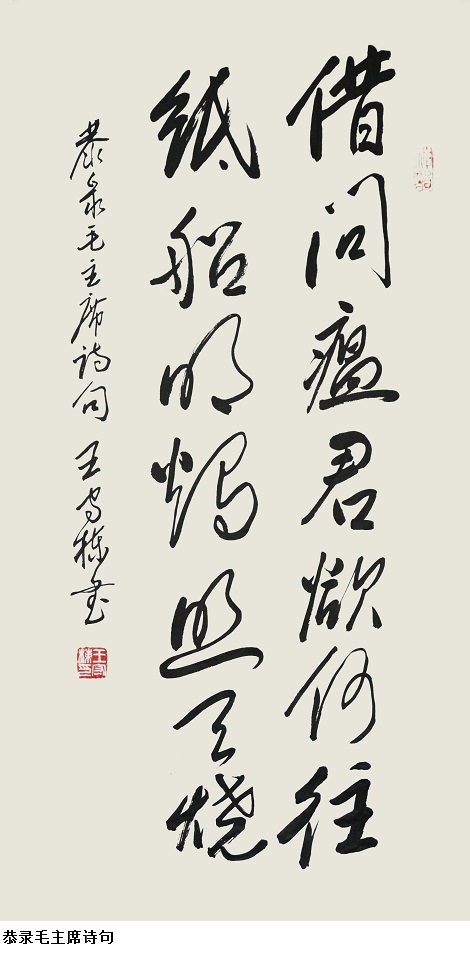 借问瘟君欲何往
纸船明烛照天烧
恭录毛主席诗句 王国栋书
恭录毛主席诗句